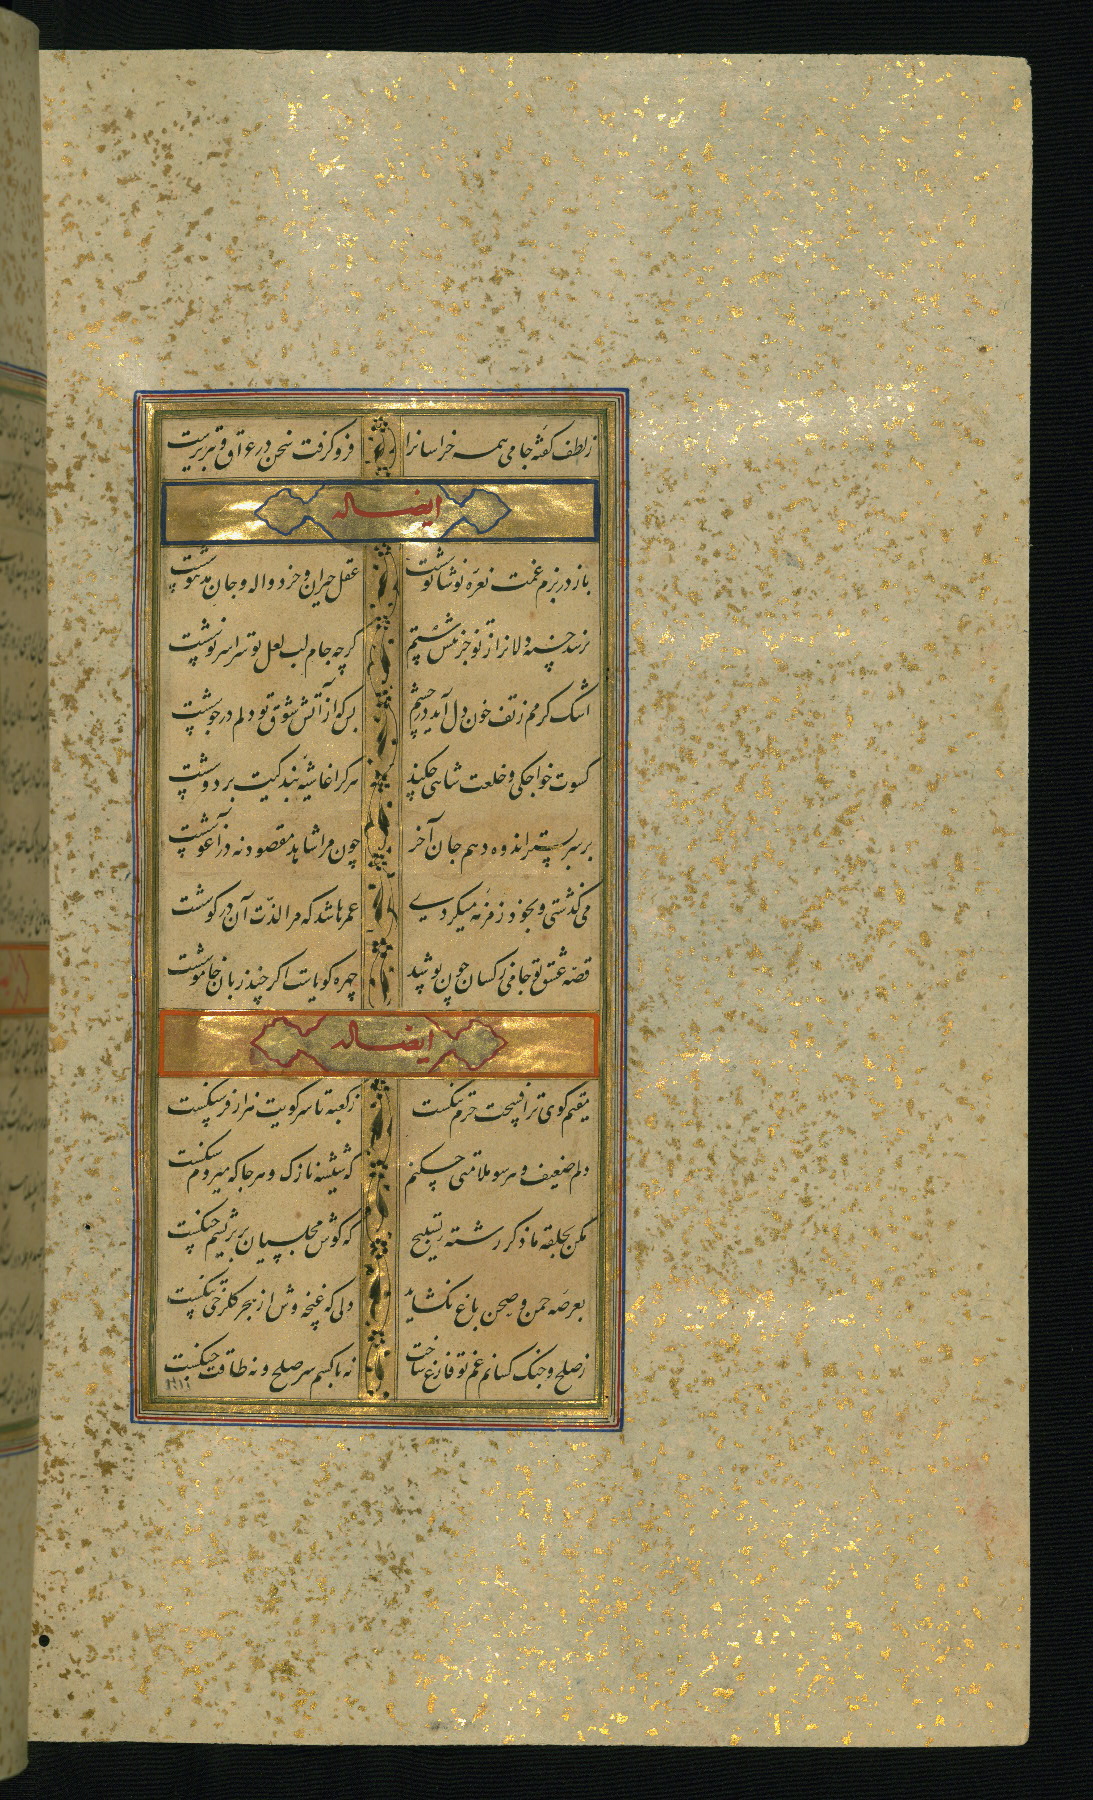 زلطف گفته جامی همه خراسانرا فرو گرفت سخن در عراق و تبریزیست
ایضاله
باز در بزم غمت نعره نوشانوشست عقل حیران و خرد واله و جان مدهوشست
نرسد خسته دلانرا ز تو جز نیش ستم گرچه جام لب لعل تو سراسر نوشست
اشک گرمم ز تف خون دل آید در چشم بس که از آتش شوق تو دلم در جوشست
کسوت خواجگی و خلعت شاهی چکند هر کرا غاشیه بندگیت بر دوشست
بر سر بستر اندوه دهم جان آخر چون مرا شاهد مقصود نه در آغوشست
می گذشتی و بخود زمزمه میکردی عمرها شد که مرا لذت آن در گوشست
قصه عشق تو جامی ز کسان چون پوشید چهره گویاست اگر چند زبان خاموشست
ایضاله
مقیم کوی ترا فسحت حرم تنگست ز کعبه تا سر کویت هزار فرسنگست
دلم ضعیف و هر سو ملامتی چکنم که شیشه نازک و هر جا که میروم سنگست
مکن بحلقه ما ذکر رشته تسبیح که گوش مجلسیان بر بریشم چنگست
بعرصه چمن و صحن باغ نگشاید دلی که غنچه وش از هجر گلرخی تنگست
ز صلح و جنگ کسانم غم تو فارغ ساخت نه با کسم سر صلح و نه طاقت جنگست